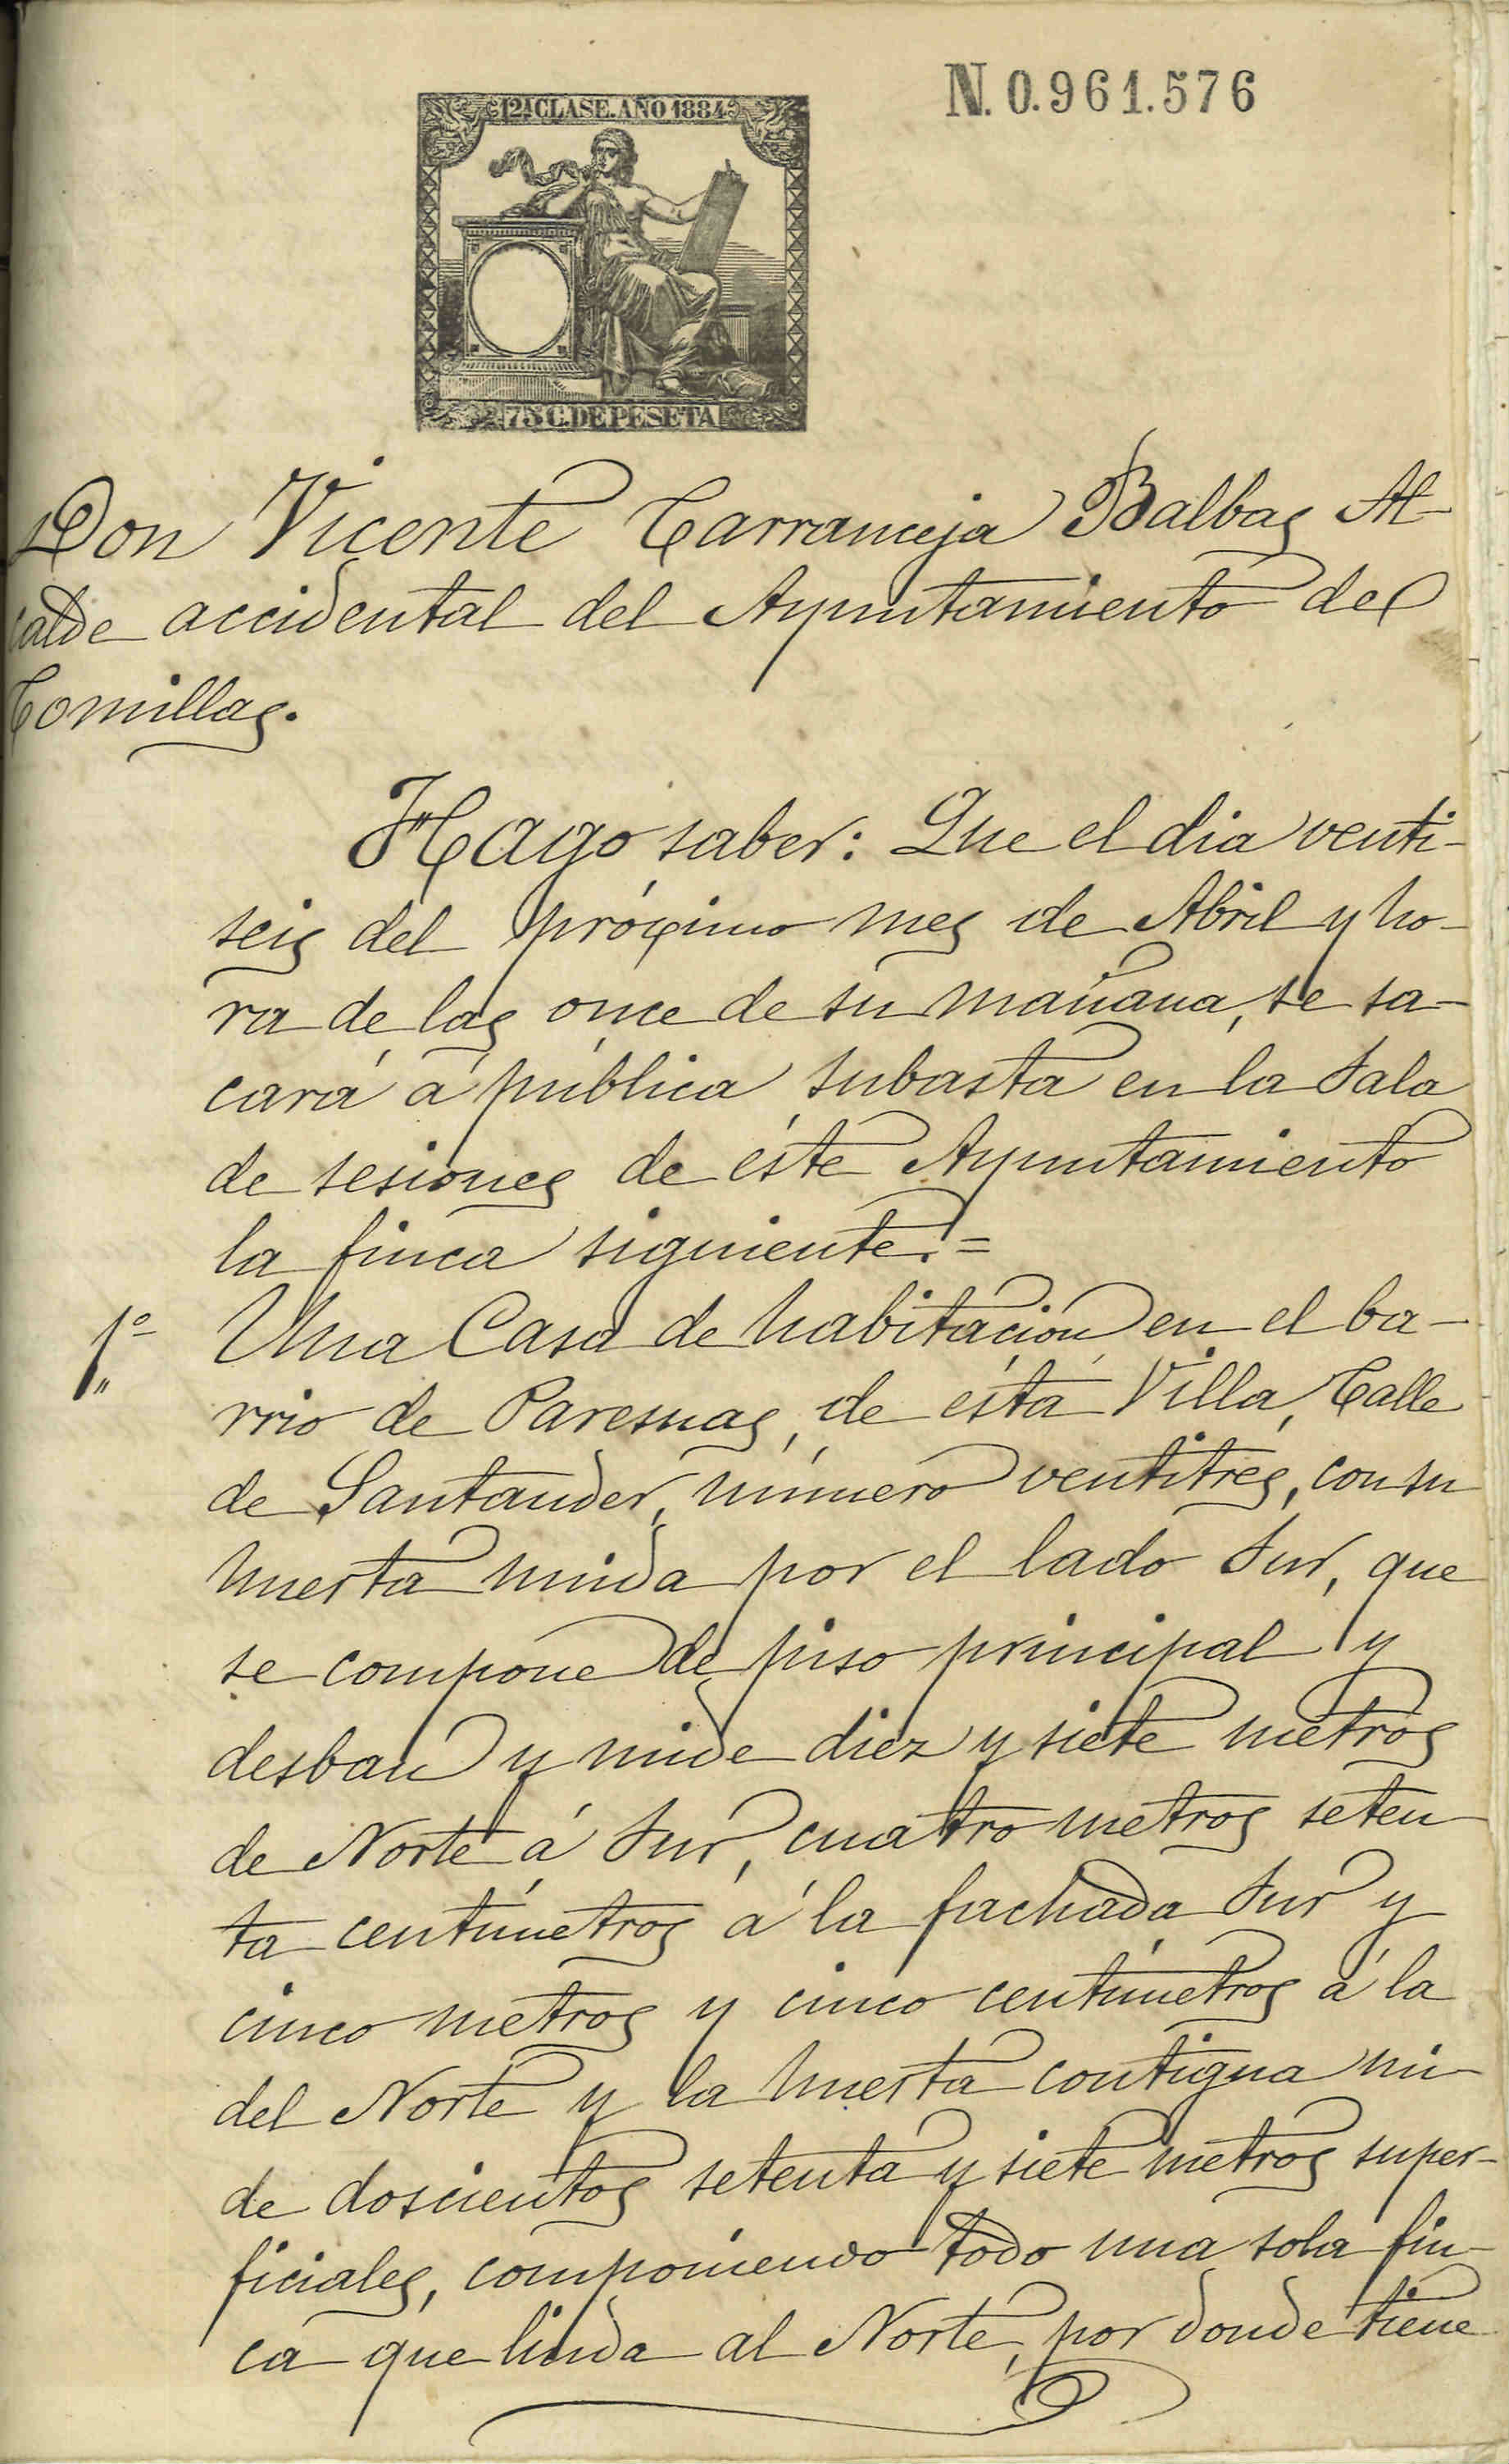 N. 0.961.576
12ª CLASE. AÑO 1884
75 C. DE PESETA
Don Vicente Carranceja Balbas Al-
calde accidental del Ayuntamiento de
Comillas.
Hago saber: Que el dia venti-
seis del próximo mes de Abril y ho-
ra de las once de su mañana, se sa-
cará á pública subasta en la Sala
de sesiones de éste Ayuntamiento
la finca siguiente! =
1º Una Casa de habitación en el ba-
rrio de Paresnas, de ésta Villa, Calle
de Santander, número ventitres, con su
huerta unida por el lado Sur, que
se compone de piso principal y
desban y mide diez y siete metros
de Norte á Sur, cuatro metros seten
ta centímetros á la fachada Sur y
cinco metros y cinco centímetros á la
del Norte y la huerta contigua mi-
de doscientos setenta y siete metros super-
ficiales, componiendo todo una sola fin-
ca que linda al Norte, por donde tiene